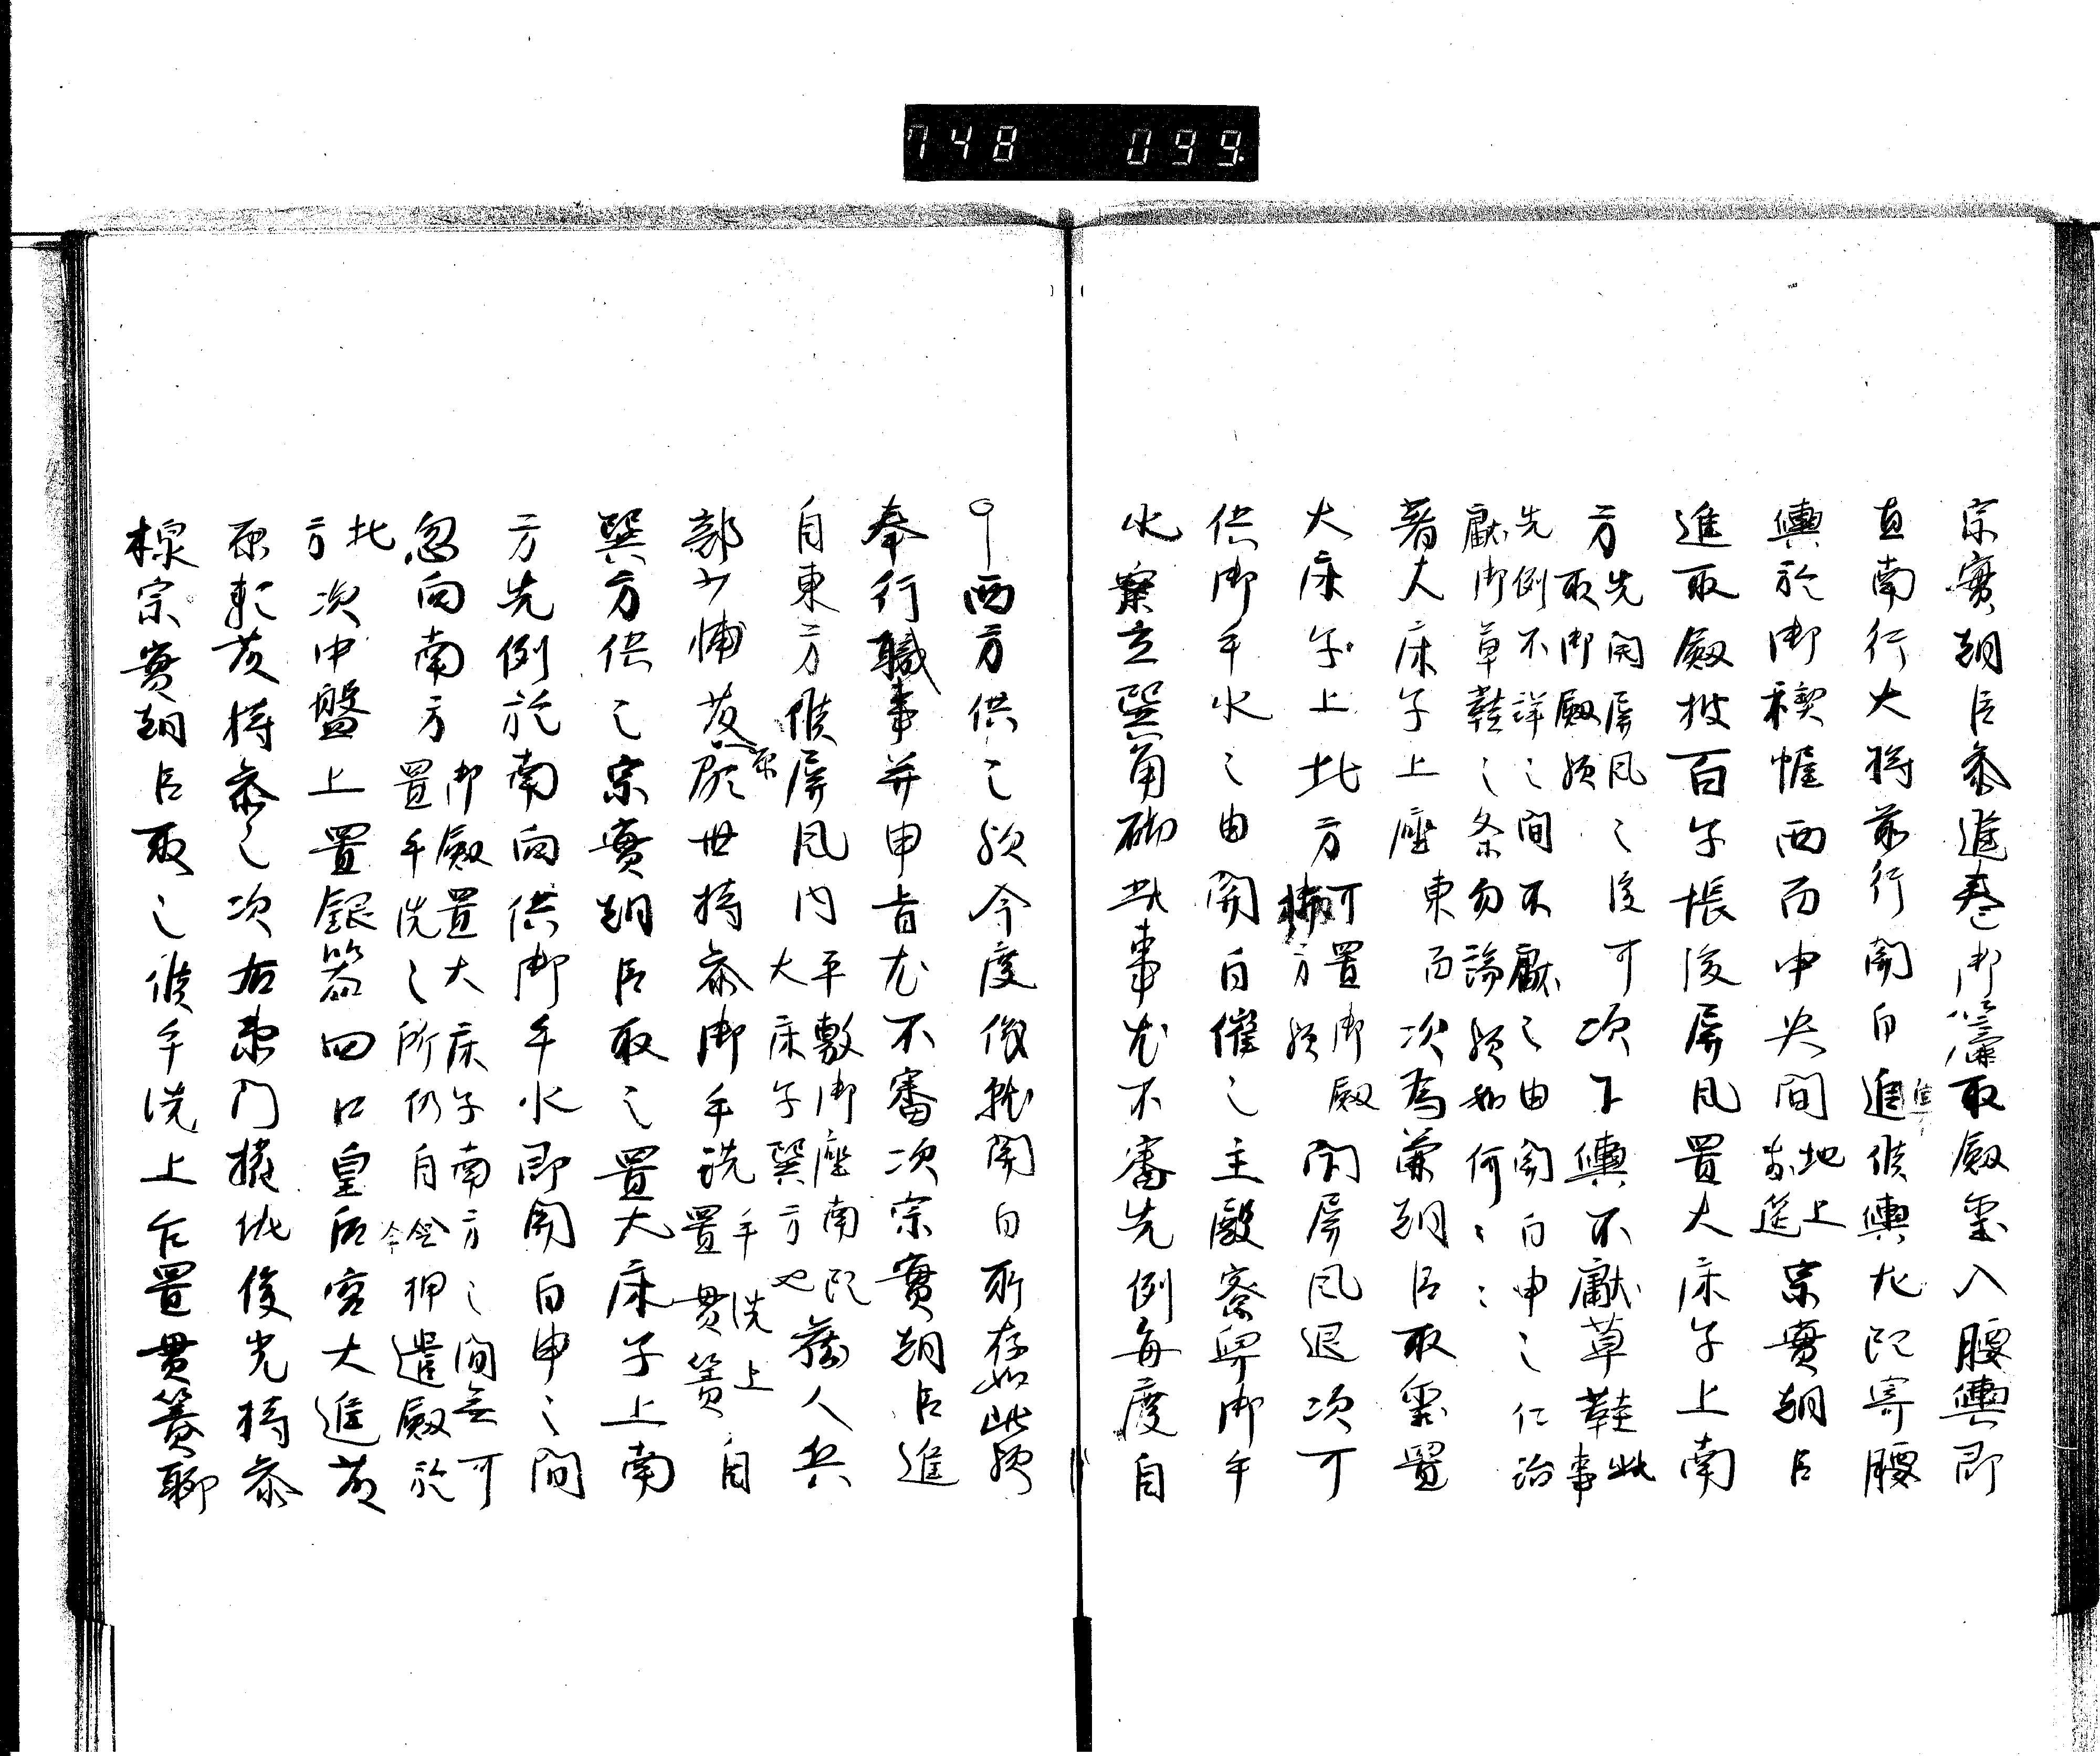 748 099.
宗實朝臣参進巻御簾取劔璽入腰輿即
直南行大将前行関白進候輿尤既寄腰
輿於御禊幄西面中央間地上
莚宗實朝臣
進取劔披百子帳後屏風置大床子上南
方先開屏風之後可
取御劔歟次下輿不献草鞋此
事
先例不詳之間不献之由関白申之仁治
献御草鞋之条勿論歟如何々々
着大床子上座東面次為兼朝臣取璽置
大床子上北方可置御劔
方歟閇屏風退次可
供御手水之由関白催之主殿寮舁御手
水案立巽角砌此事尤不審先例毎度自
西方供之歟今度俊就関白所存如此歟
奉行職事并申旨尤不審次宗實朝臣進
自東方候屏風内平敷御座南既
大床子巽方也蔵人兵
部少輔藤原世持参御手洗手洗上
置貫簀自
巽方供之宗實朝臣取之置大床子上南
方先例於南向供御手水即関白申之間
忽向南方御劔置大床子南方之間無可
置手洗之所仍自令押遣劔於
北
方次中盤上置銀器四口皇后宮大進藤
原持参之次右衛門権佐俊光持参
楾宗實朝臣取之候手洗上乍置貫簀聊